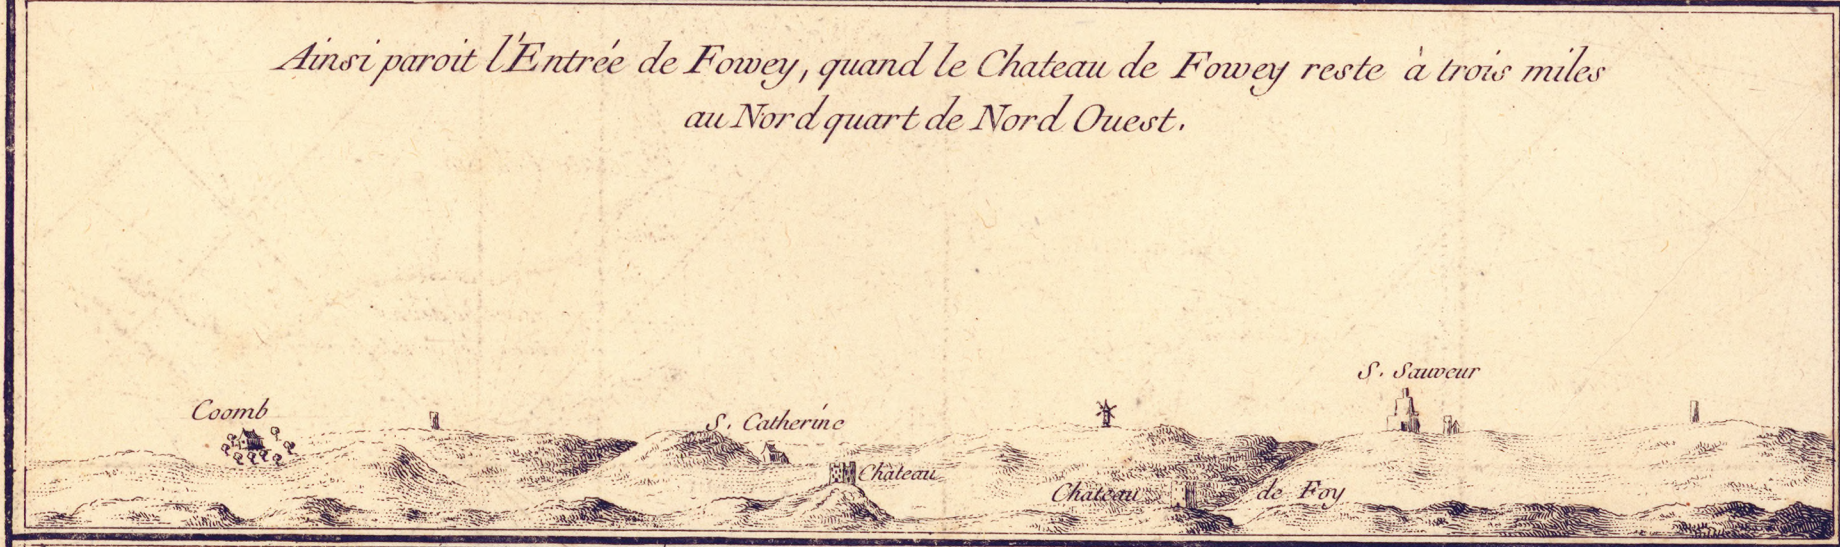 Ainsi paroit l'Entrée de Fowey, quand le Chateau de Fowey reste à trois miles
au Nord quart de Nord Ouest.
S. Sauveur
Coomb
S. Catherine
Chateau
Chateau de Foy